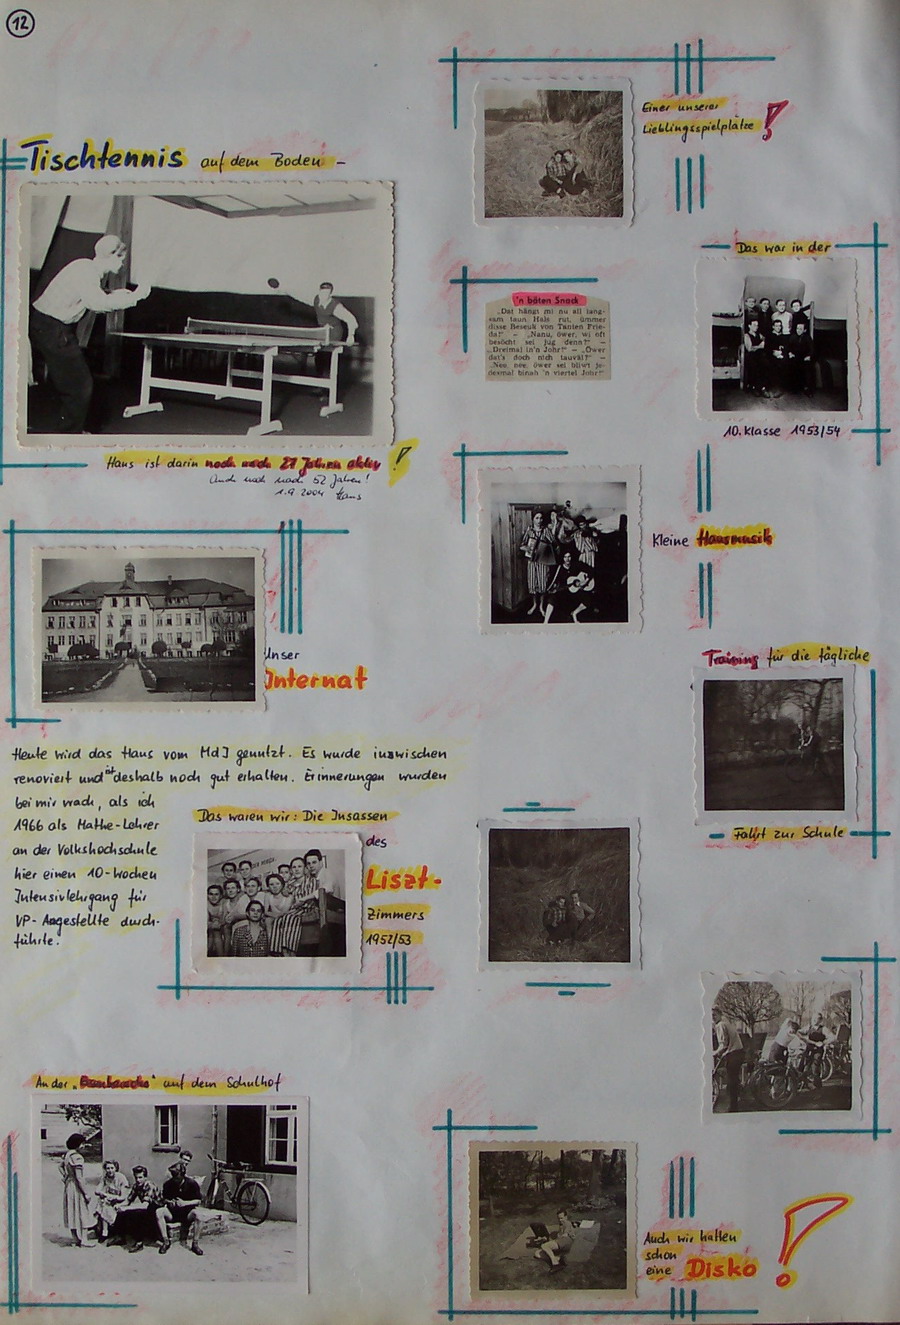 12
Tischtennis auf dem Boden -
Hans ist darin noch nach 27 Jahren aktiv!
Auch noch nach 52 Jahren!
1.9.2004 Hans
Einer unserer
Lieblingsspielplätze!
'n bäten Snack
„Dat hängt mi nu all lang-
sam taun Hals rut, ümmer
disse Beseuk von Tanten Frie-
da!" — „Nanu, öwer, wi oft
besöcht sei jug denn?" —
„Dreimal in'n Johr!" — „Öwer
dat's doch nich tauväl?" —
„Nee, nee, öwer sei bliwt je-
desmal binah 'n viertel Johr!"
Das war in der
10. Klasse 1953/54
Kleine Hausmusik
Unser
Internat
Heute wird das Haus vom MdI genutzt. Es wurde inzwischen
renoviert und ist deshalb noch gut erhalten. Erinnerungen wurden
bei mir wach, als ich
1966 als Mathe-Lehrer
an der Volkshochschule
hier einen 10-Wochen
Intensivlehrgang für
VP-Angestellte durch-
führte.
Das waren wir: Die Insassen
des
Liszt-
Zimmers
1952/53
Training für die tägliche
Fahrt zur Schule
An der „ " auf dem Schulhof
Auch wir hatten
schon
eine Disko!